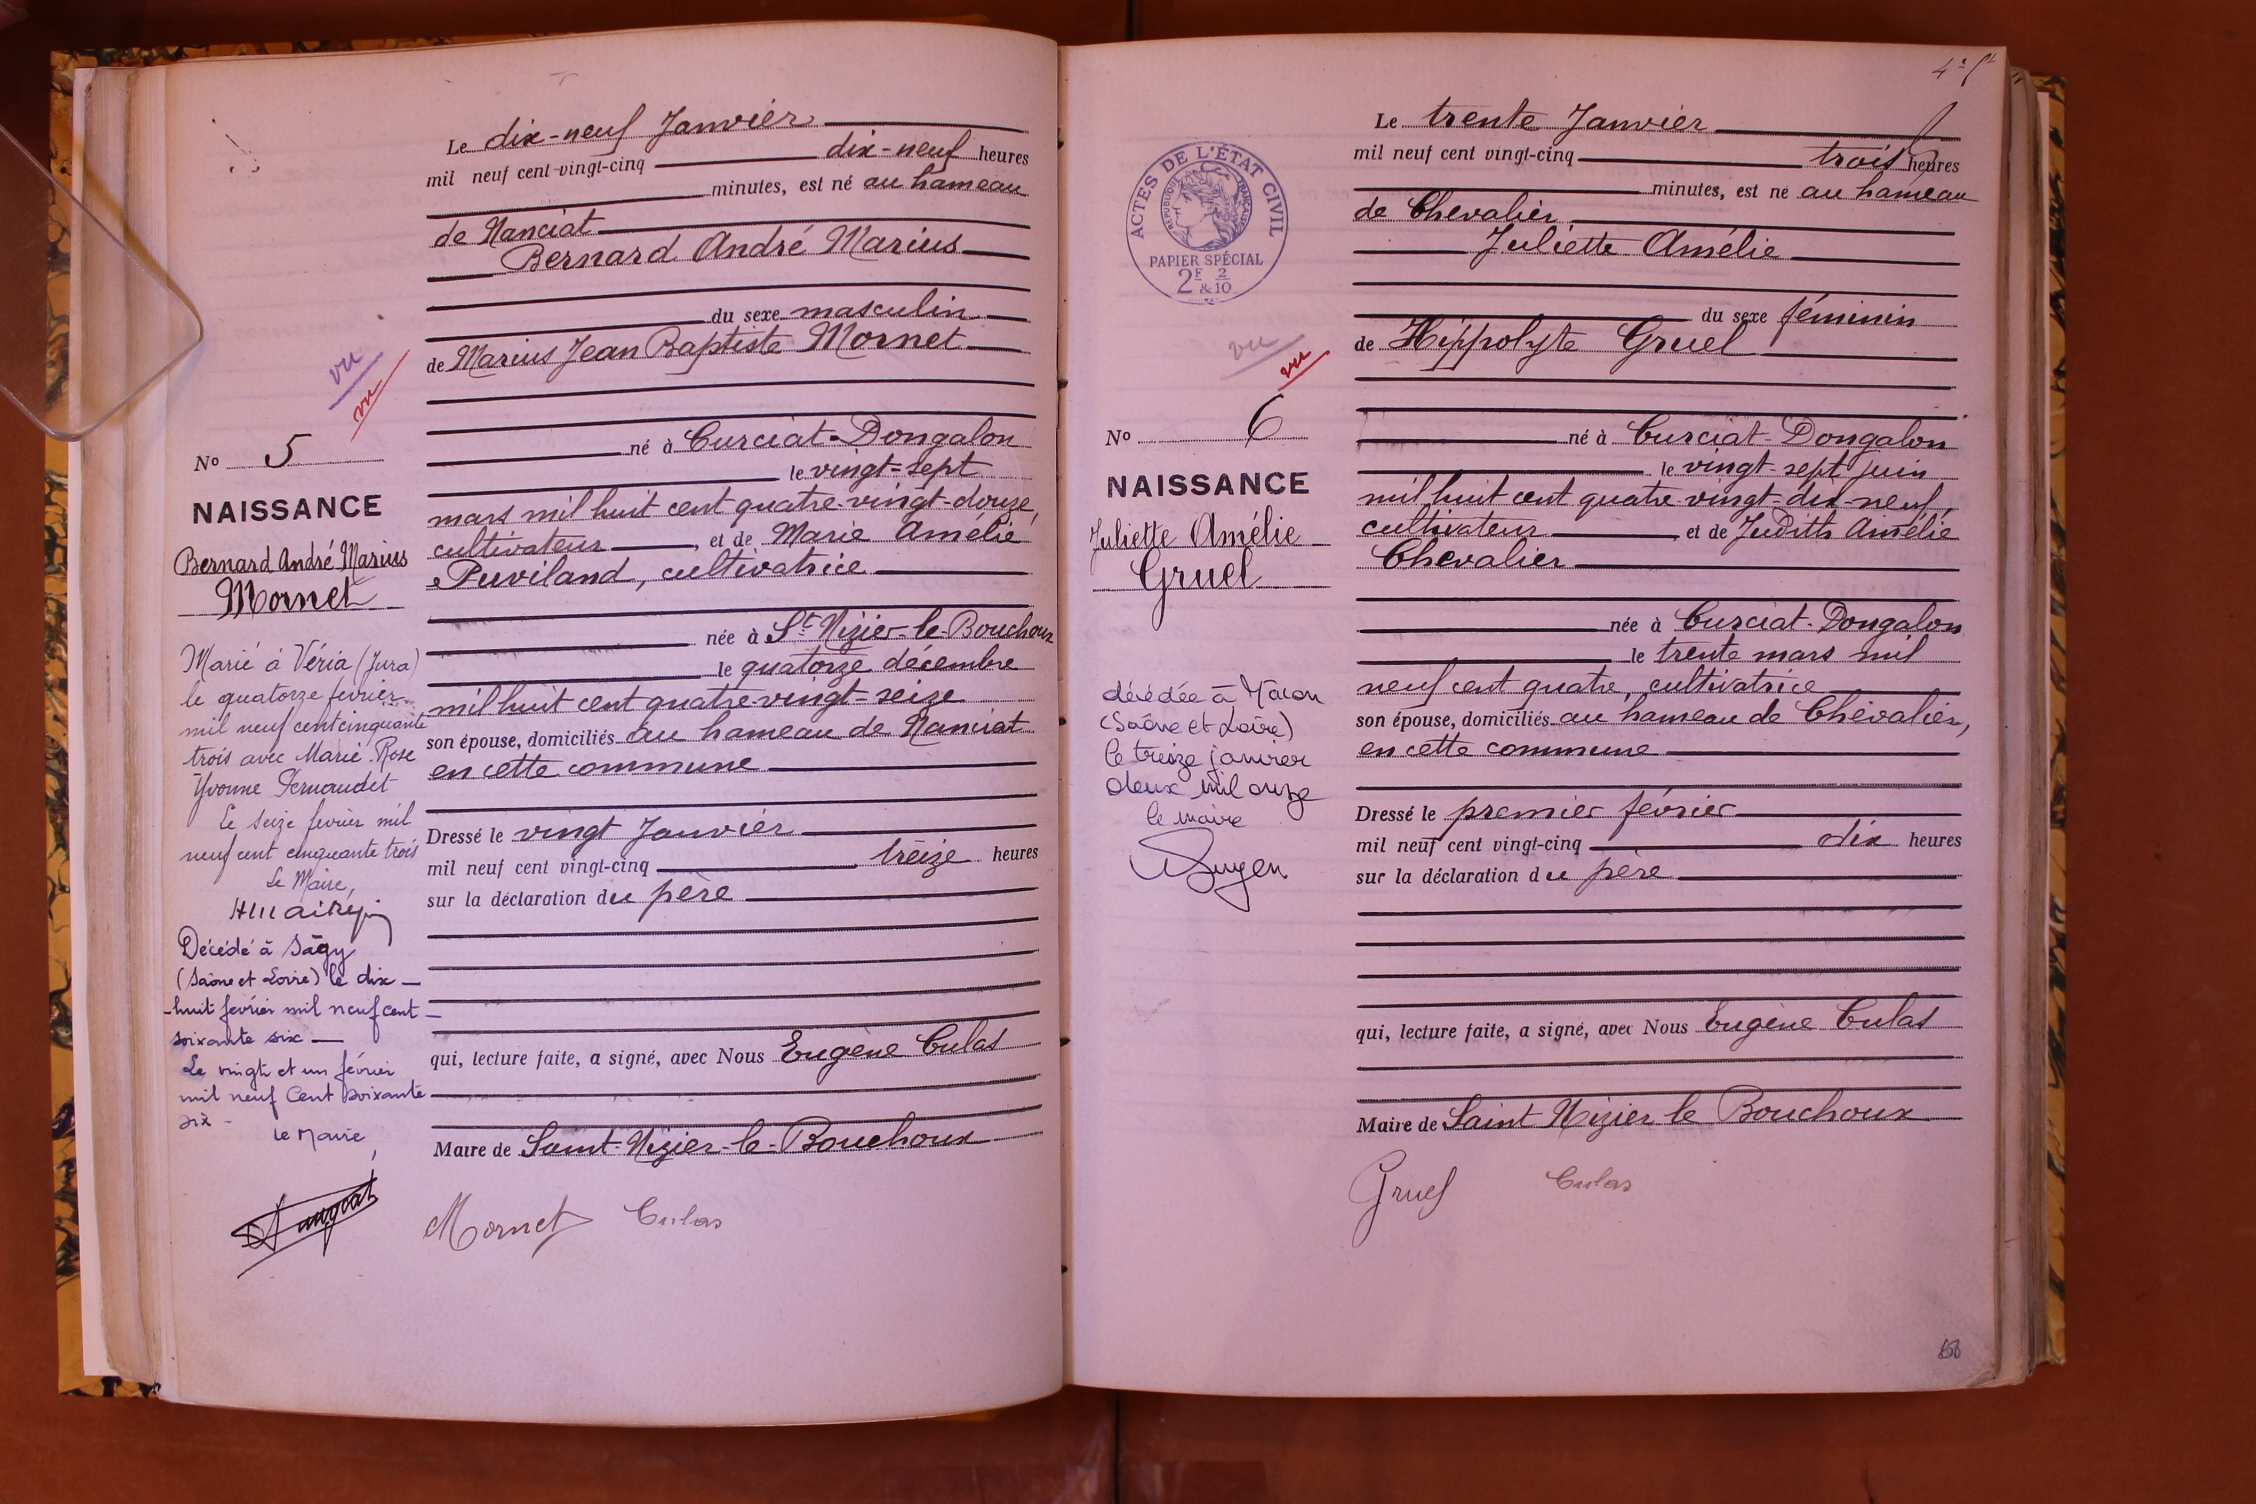 Le dix-neuf Janvier
mil neuf cent-vingt-cinq dix-neuf heures
minutes, est né au hameau
de Nanciat
Bernard André Marius
du sexe masculin
de Marius Jean Baptiste Mornet
né à Curciat-Dongalon
le vingt-sept
mars mil huit cent quatre-vingt-douze,
cultivateur, et de Marie Amélie
Puviland, cultivatrice
née à St Nizier-le-Bouchoux
le quatorze décembre
mil huit cent quatre-vingt-seize
son épouse, domiciliés au hameau de Nanciat
en cette commune
Dressé le vingt Janvier
mil neuf cent vingt-cinq treize heures
sur la déclaration du père
qui, lecture faite, a signé, avec Nous Eugène Culas
Maire de Saint-Nizier-le-Bouchoux
Mornet Culas
vu
vu
No 5
NAISSANCE
Bernard André Marius
Mornet
Marié à Véria (Jura)
le quatorze février
mil neuf cent cinquante
trois avec Marie Rose
Yvonne
Le seize février mil
neuf cent cinquante trois
Le Maire,
Décédé à Sâgy
(Saône et Loire) le dix
-huit février mil neuf cent
soixante six
Le vingt et un février
mil neuf Cent soixante
six -
Le Maire,
Le trente Janvier
mil neuf cent vingt-cinq trois heures
minutes, est né au hameau
de Chevalier
Juliette Amélie
du sexe féminin
de Hippolyte Gruel
né à Curciat-Dongalon
le vingt-sept juin
mil huit cent quatre-vingt-dix-neuf,
cultivateur et de Judith Amélie
Chevalier
née à Curciat-Dongalon
le trente mars mil
neuf cent quatre, cultivatrice
son épouse, domiciliés au hameau de Chevalier,
en cette commune
Dressé le premier février
mil neuf cent vingt-cinq dix heures
sur la déclaration du père
qui, lecture faite, a signé, avec Nous Eugène Culas
Maire de Saint Nizier le Bouchoux
Gruel Culas
ACTES DE L'ÉTAT CIVIL
RÉPUBLIQUE FRANÇAISE
PAPIER SPÉCIAL
2F & 2/10
vu
vu
No 6
NAISSANCE
Juliette Amélie
Gruel
décédée à Mâcon
(Saône et Loire)
le treize janvier
deux mil onze
le maire